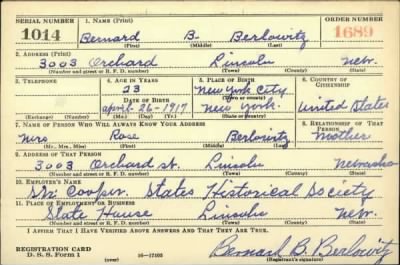 SERIAL NUMBER 1. NAME (Print) ORDER NUMBER
1014 Bernard B. Berlowitz 1689
(First) (Middle) (Last)
2. ADDRESS (Print)
3003 Orchard Lincoln Nebr.
(Number and street or R. F. D. number) (Town) (County) (State)
3. TELEPHONE 4. AGE IN YEARS 5. PLACE OF BIRTH 6. COUNTRY OF CITIZENSHIP
23 New York City
DATE OF BIRTH (Town or county)
April 26-1917 New York. United States
(Exchange) (No.) (Mo.) (Day) (Yr.) (State or country)
7. NAME OF PERSON WHO WILL ALWAYS KNOW YOUR ADDRESS 8. RELATIONSHIP OF THAT PERSON
Mrs Rose Berlowitz Mother
(Mr., Mrs., Miss) (First) (Middle) (Last)
9. ADDRESS OF THAT PERSON
3003 Orchard St. Lincoln Nebraska
(Number and street or R. F. D. number) (Town) (County) (State)
10. EMPLOYER'S NAME
Cooper. States Historical Society
11. PLACE OF EMPLOYMENT OR BUSINESS
State House Lincoln Nebr.
(Number and street or R. F. D. number) (Town) (County) (State)
I AFFIRM THAT I HAVE VERIFIED ABOVE ANSWERS AND THAT THEY ARE TRUE.
REGISTRATION CARD Bernard B. Berlowitz
D. S. S. Form 1 (over) 16-17105 (Registrant's signature)